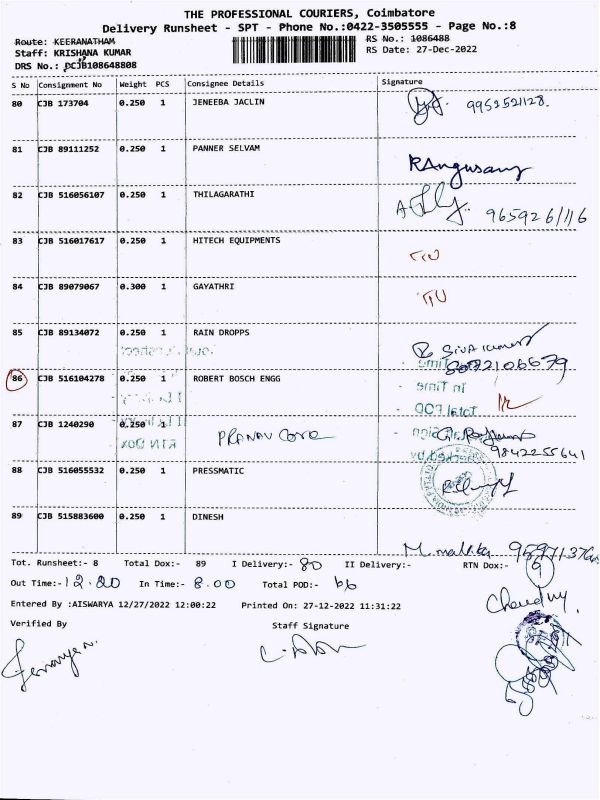 THE PROFESSIONAL COURIERS, Coimbatore
Delivery Runsheet - SPT - Phone No.:0422-3505555 - Page No.:8
Route: KEERANATHAM RS No.: 1086488
Staff: KRISHANA KUMAR RS Date: 27-Dec-2022
DRS No.: PCJB108648808
S No Consignment No Weight PCS Consignee Details Signature
80 CJB 173704 0.250 1 JENEEBA JACLIN 9952521128.
81 CJB 89111252 0.250 1 PANNER SELVAM RAngusamy
82 CJB 516056107 0.250 1 THILAGARATHI
83 CJB 516017617 0.250 1 HITECH EQUIPMENTS
84 CJB 89079067 0.300 1 GAYATHRI
85 CJB 89134072 0.250 1 RAIN DROPPS Sivakumar
8072106679
86 CJB 516104278 0.250 1 ROBERT BOSCH ENGG
87 CJB 1240290 0.250 1 PRANAV CORE
9842255641
88 CJB 516055532 0.250 1 PRESSMATIC
89 CJB 515883600 0.250 1 DINESH M. mallika
Tot. Runsheet:- 8 Total Dox:- 89 I Delivery:- 80 II Delivery:- RTN Dox:- 9
Out Time:- 12.20 In Time:- 8.00 Total POD:- 66
Entered By :AISWARYA 12/27/2022 12:00:22 Printed On: 27-12-2022 11:31:22
Verified By Staff Signature